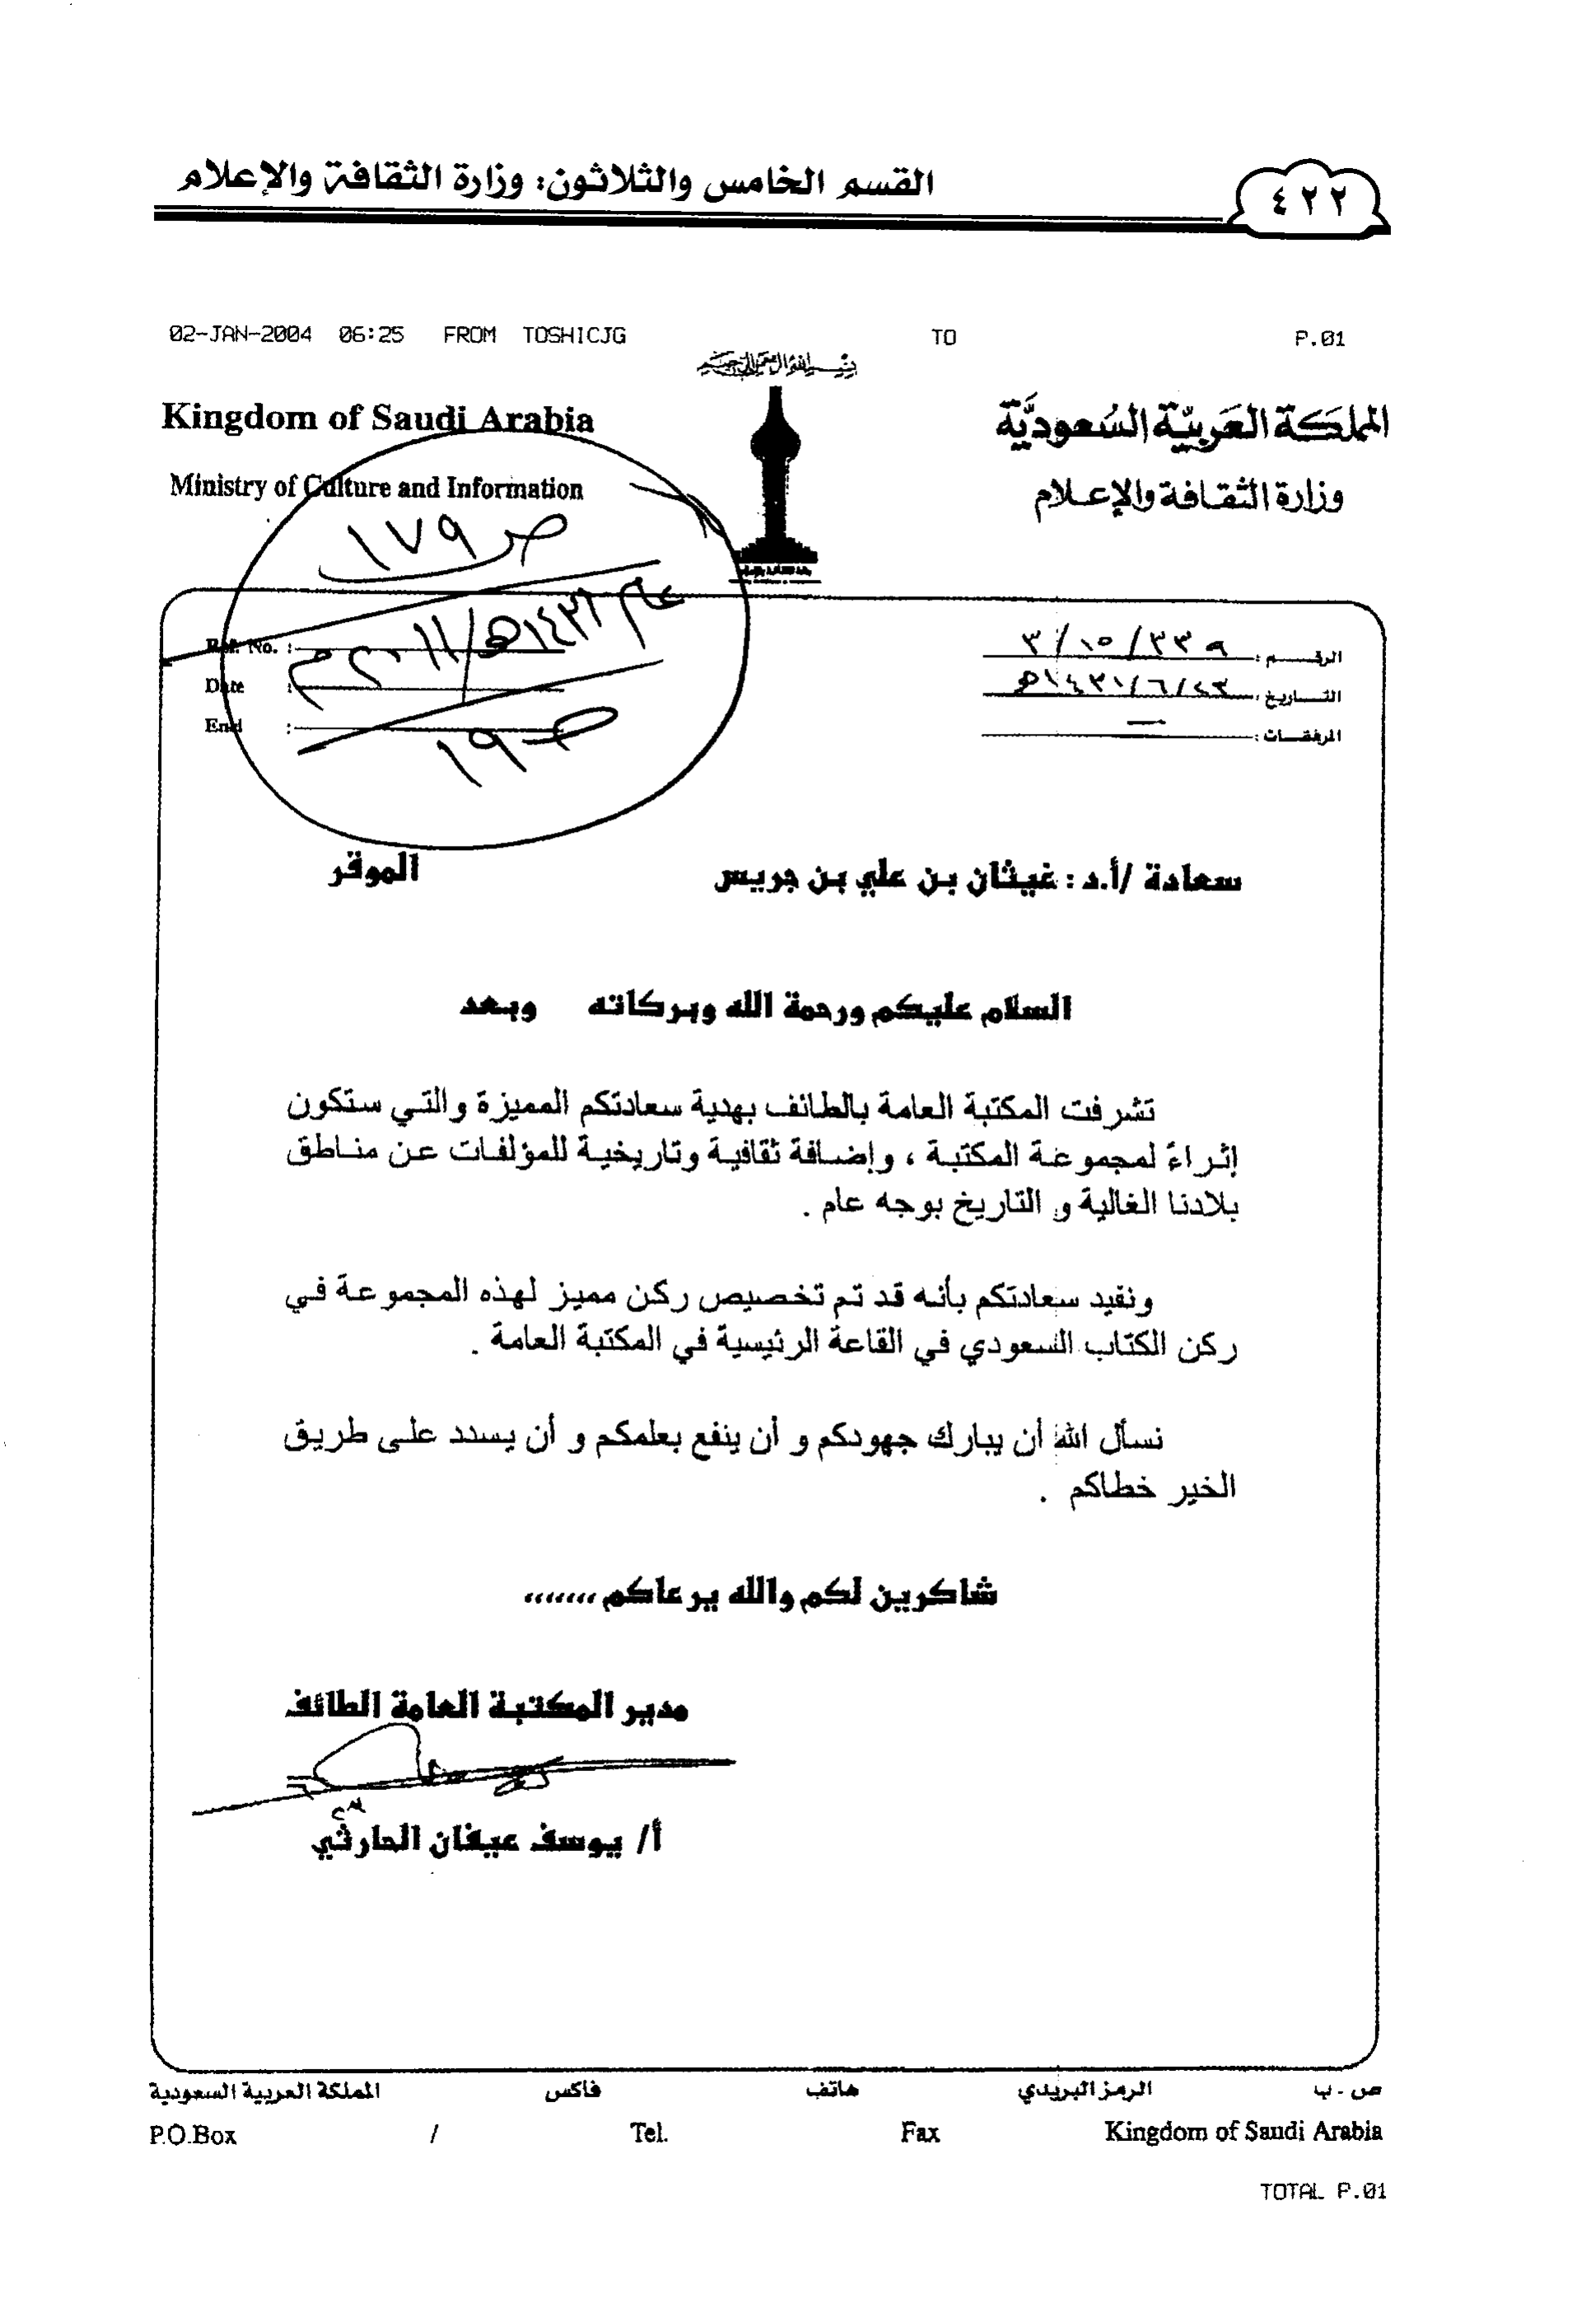 ٤٢٢
القسم الخامس والثلاثون: وزارة الثقافة والإعلام
02-JAN-2004 06:25 FROM TOSHICJG TO P.01
بسم الله الرحمن الرحيم
المملكة العربية السعودية
Kingdom of Saudi Arabia
وزارة الثقافة والإعلام
Ministry of Culture and Information
ص ١٧٩
عام ١٤٣٢هـ/٢٠١١م
ص ١٩
الرقم : ٣/١٥/٣٣٩
التاريخ : ٢٣/٦/١٤٣١هـ
المرفقات : —
Ref. No. :
Date :
Encl :
سعادة /أ.د : غيثان بن علي بن جريس الموقر
السلام عليكم ورحمة الله وبركاته وبعد
تشرفت المكتبة العامة بالطائف بهدية سعادتكم المميزة والتي ستكون
إثراءً لمجموعة المكتبة ، وإضافة ثقافية وتاريخية للمؤلفات عن مناطق
بلادنا الغالية و التاريخ بوجه عام .
ونفيد سعادتكم بأنه قد تم تخصيص ركن مميز لهذه المجموعة في
ركن الكتاب السعودي في القاعة الرئيسية في المكتبة العامة .
نسأل الله أن يبارك جهودكم و أن ينفع بعلمكم و أن يسدد على طريق
الخير خطاكم .
شاكرين لكم والله يرعاكم ,,,,,,,
مدير المكتبة العامة الطائف
أ/ يوسف عيفان الحارثي
ص - ب الرمز البريدي هاتف فاكس المملكة العربية السعودية
P.O.Box / Tel. Fax Kingdom of Saudi Arabia
TOTAL P.01